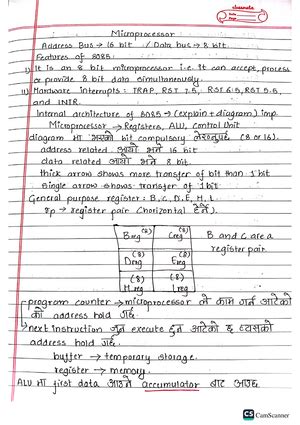 classmate
Date
Page
Microprocessor
Address Bus → 16 bit / Data bus → 8 bit
Features of 8085:
i) It is an 8 bit microprocessor i.e. it can accept, process
or provide 8 bit data simultaneously.
ii) Hardware interrupts : TRAP, RST 7.5, RST 6.5, RST 5.5,
and INTR.
Internal architecture of 8085 → (explain + diagram) imp.
Microprocessor → Registers, ALU, Control Unit
diagram मा bit compulsory (8 or 16).
address related आयो भने 16 bit
data related आयो भने 8 bit.
thick arrow shows more transfer of bit than 1 bit
Single arrow shows transfer of 1 bit
General purpose register : B, C, D, E, H, L
rp → register pair (horizontal हेर्ने).
B reg (8) C reg (8) B and C are a
D reg (8) E reg (8) register pair
H reg (8) L reg (8)
program counter → microprocessor ले काम गर्न आटेको
को address hold गर्छ.
next instruction जुन execute हुन आटेको छ त्यसको
address hold गर्छ.
buffer → temporary storage.
register → memory.
ALU मा first data आउने accumulator बाट आउछ.
CS CamScanner